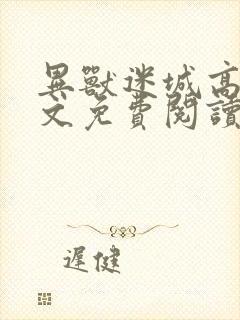 異獸迷城高
文免費閱讀
遲健